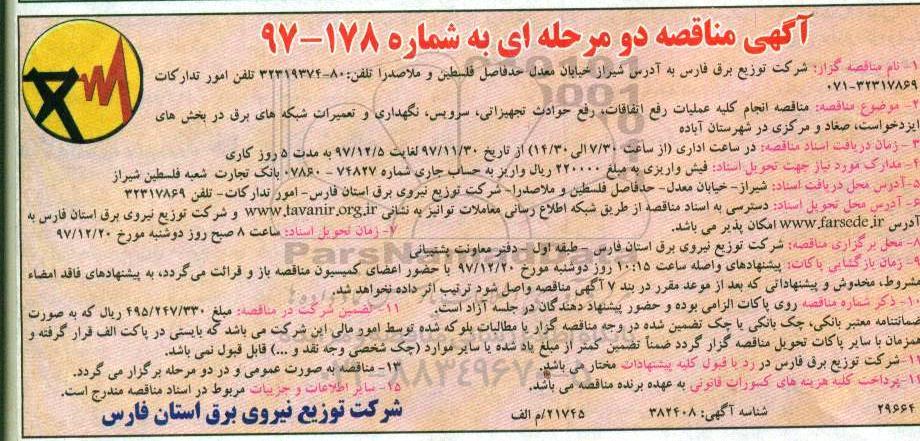 آگهی مناقصه دو مرحله ای به شماره ۱۷۸-۹۷
۱- نام مناقصه گزار: شرکت توزیع برق فارس به آدرس شیراز خیابان معدل حدفاصل فلسطین و ملاصدرا تلفن: ۸۰-۳۲۳۱۹۳۷۴ تلفن امور تدارکات
۰۷۱-۳۲۳۱۷۸۶۹
۲- موضوع مناقصه: مناقصه انجام کلیه عملیات رفع اتفاقات، رفع حوادث تجهیزاتی، سرویس، نگهداری و تعمیرات شبکه های برق در بخش های
ایزدخواست، صغاد و مرکزی در شهرستان آباده
۳- زمان دریافت اسناد مناقصه: در ساعت اداری (از ساعت ۷/۳۰ الی ۱۴/۳۰) از تاریخ ۹۷/۱۱/۳۰ لغایت ۹۷/۱۲/۵ به مدت ۵ روز کاری
۴- مدارک مورد نیاز جهت تحویل اسناد: فیش واریزی به مبلغ ۲۲۰۰۰۰ ریال واریز به حساب جاری شماره ۷۴۸۲۷ - ۰۷۸۶۰ بانک تجارت شعبه فلسطین شیراز
۵- آدرس محل دریافت اسناد: شیراز- خیابان معدل- حدفاصل فلسطین و ملاصدرا- شرکت توزیع نیروی برق استان فارس- امور تدارکات- تلفن ۳۲۳۱۷۸۶۹
۶- آدرس محل تحویل اسناد: دسترسی به اسناد مناقصه از طریق شبکه اطلاع رسانی معاملات توانیر به نشانی www.tavanir.org.ir و شرکت توزیع نیروی برق استان فارس به
آدرس www.farsedc.ir امکان پذیر می باشد. ۷- زمان تحویل اسناد: ساعت ۸ صبح روز دوشنبه مورخ ۹۷/۱۲/۲۰
۸- محل برگزاری مناقصه: شرکت توزیع نیروی برق استان فارس - طبقه اول - دفتر معاونت پشتیبانی
۹- زمان بازگشایی پاکات: پیشنهادهای واصله ساعت ۱۰:۱۵ روز دوشنبه مورخ ۹۷/۱۲/۲۰ با حضور اعضای کمیسیون مناقصه باز و قرائت می گردد، به پیشنهادهای فاقد امضاء
مشروط، مخدوش و پیشنهاداتی که بعد از موعد مقرر در بند ۷ آگهی مناقصه واصل شود ترتیب اثر داده نخواهد شد.
۱۰- ذکر شماره مناقصه روی پاکات الزامی بوده و حضور پیشنهاد دهندگان در جلسه آزاد است. ۱۱- تضمین شرکت در مناقصه: مبلغ ۴۹۵/۲۴۷/۳۳۰ ریال که به صورت
ضمانتنامه معتبر بانکی، چک بانکی یا چک تضمین شده در وجه مناقصه گزار یا مطالبات بلوکه شده توسط امور مالی این شرکت می باشد که بایستی در پاکت الف قرار گرفته و
همزمان با سایر پاکات تحویل مناقصه گزار گردد ضمناً تضمین کمتر از مبلغ یاد شده یا سایر موارد (چک شخصی وجه نقد و ...) قابل قبول نمی باشد.
۱۲- شرکت توزیع برق فارس در رد یا قبول کلیه پیشنهادات مختار می باشد. ۱۳- مناقصه به صورت عمومی و در دو مرحله برگزار می گردد.
۱۴- پرداخت کلیه هزینه های کسورات قانونی به عهده برنده مناقصه می باشد. ۱۵- سایر اطلاعات و جزییات مربوط در اسناد مناقصه مندرج است.
۲۹۶۶۴ شناسه آگهی: ۳۸۲۴۰۸ ۲۱۷۴۵/م الف شرکت توزیع نیروی برق استان فارس
ParsNamadData